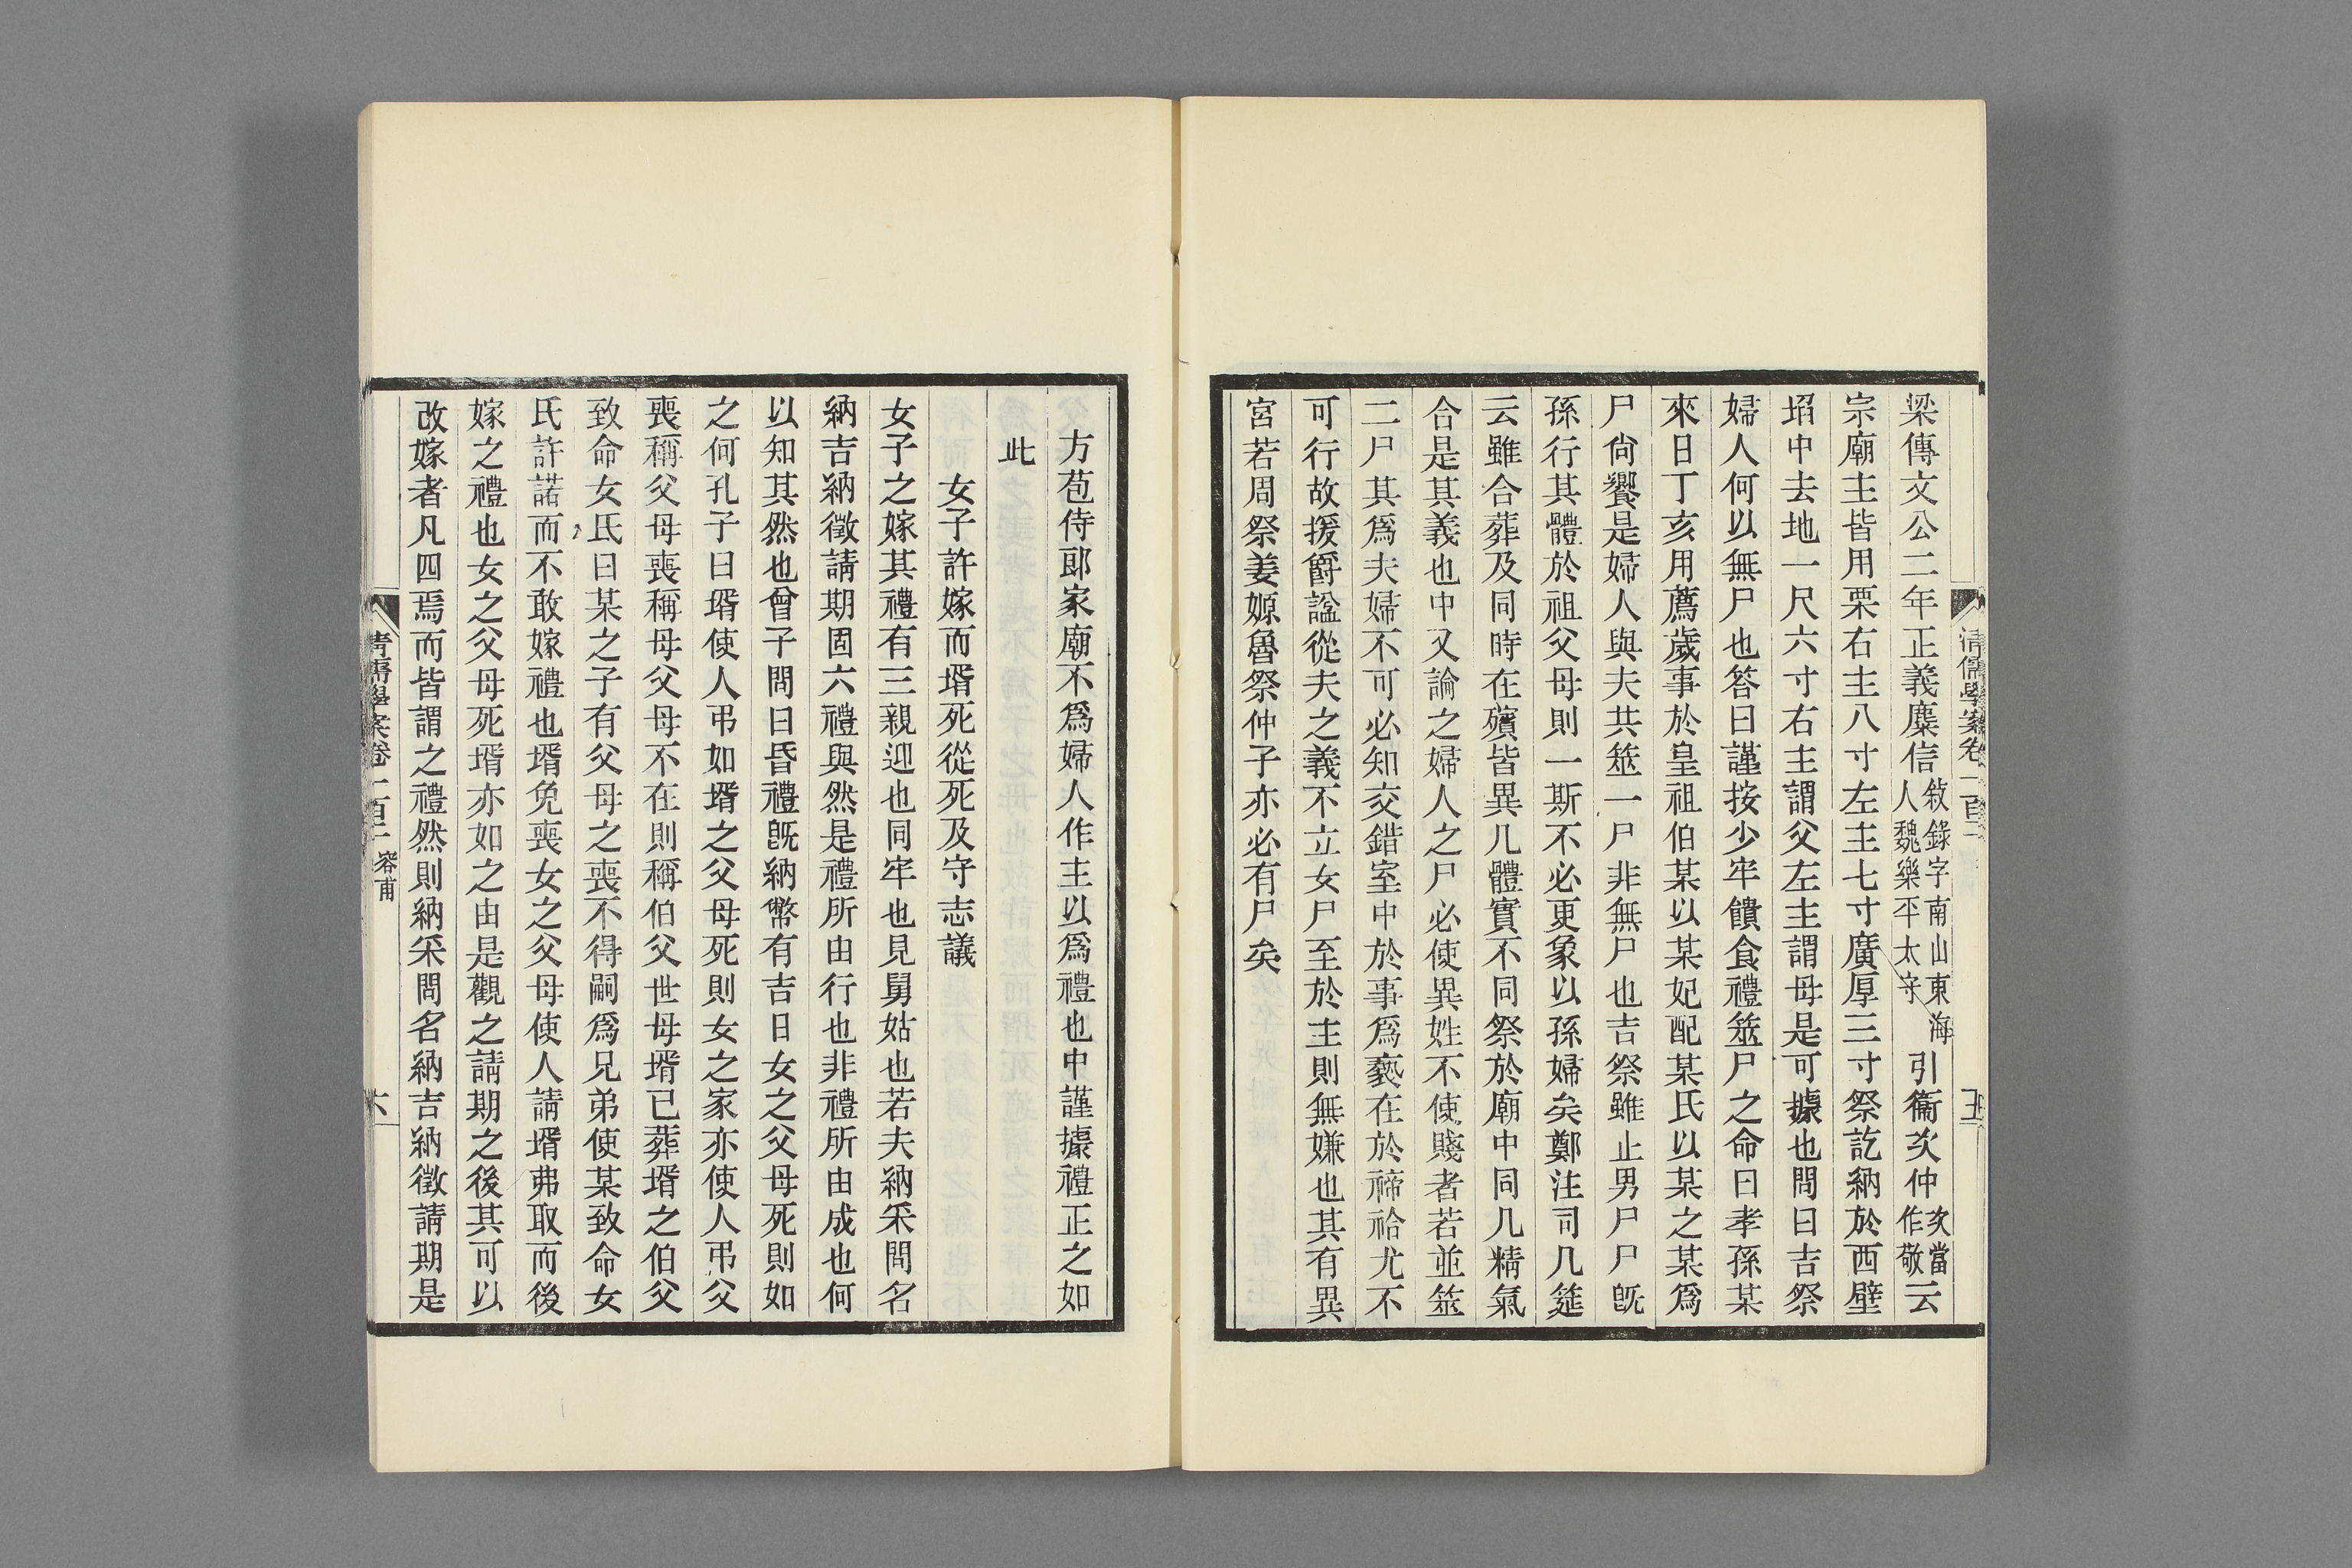 梁傳文公二年正義麋信敘錄字南山東海人魏樂平太守引衞次仲次當作敬云
宗廟主皆用栗右主八寸左主七寸廣厚三寸祭訖納於西壁
埳中去地一尺六寸右主謂父左主謂母是可據也問曰吉祭
婦人何以無尸也答曰謹按少牢饋食禮筮尸之命曰孝孫某
來日丁亥用薦歲事於皇祖伯某以某妃配某氏以某之某爲
尸尙饗是婦人與夫共筮一尸非無尸也吉祭雖止男尸尸旣
孫行其體於祖父母則一斯不必更象以孫婦矣鄭注司几筵
云雖合葬及同時在殯皆異几體實不同祭於廟中同几精氣
合是其義也中又論之婦人之尸必使異姓不使賤者若並筮
二尸其爲夫婦不可必知交錯室中於事爲褻在於禘祫尤不
可行故援爵謚從夫之義不立女尸至於主則無嫌也其有異
宮若周祭姜嫄魯祭仲子亦必有尸矣
方苞侍郎家廟不爲婦人作主以爲禮也中謹據禮正之如
此
女子許嫁而壻死從死及守志議
女子之嫁其禮有三親迎也同牢也見舅姑也若夫納采問名
納吉納徵請期固六禮與然是禮所由行也非禮所由成也何
以知其然也曾子問曰昏禮旣納幣有吉日女之父母死則如
之何孔子曰壻使人弔如壻之父母死則女之家亦使人弔父
喪稱父母喪稱母父母不在則稱伯父世母壻已葬壻之伯父
致命女氏曰某之子有父母之喪不得嗣爲兄弟使某致命女
氏許諾而不敢嫁禮也壻免喪女之父母使人請壻弗取而後
嫁之禮也女之父母死壻亦如之由是觀之請期之後其可以
改嫁者凡四焉而皆謂之禮然則納采問名納吉納徵請期是
清儒學案卷一百二 容甫
六